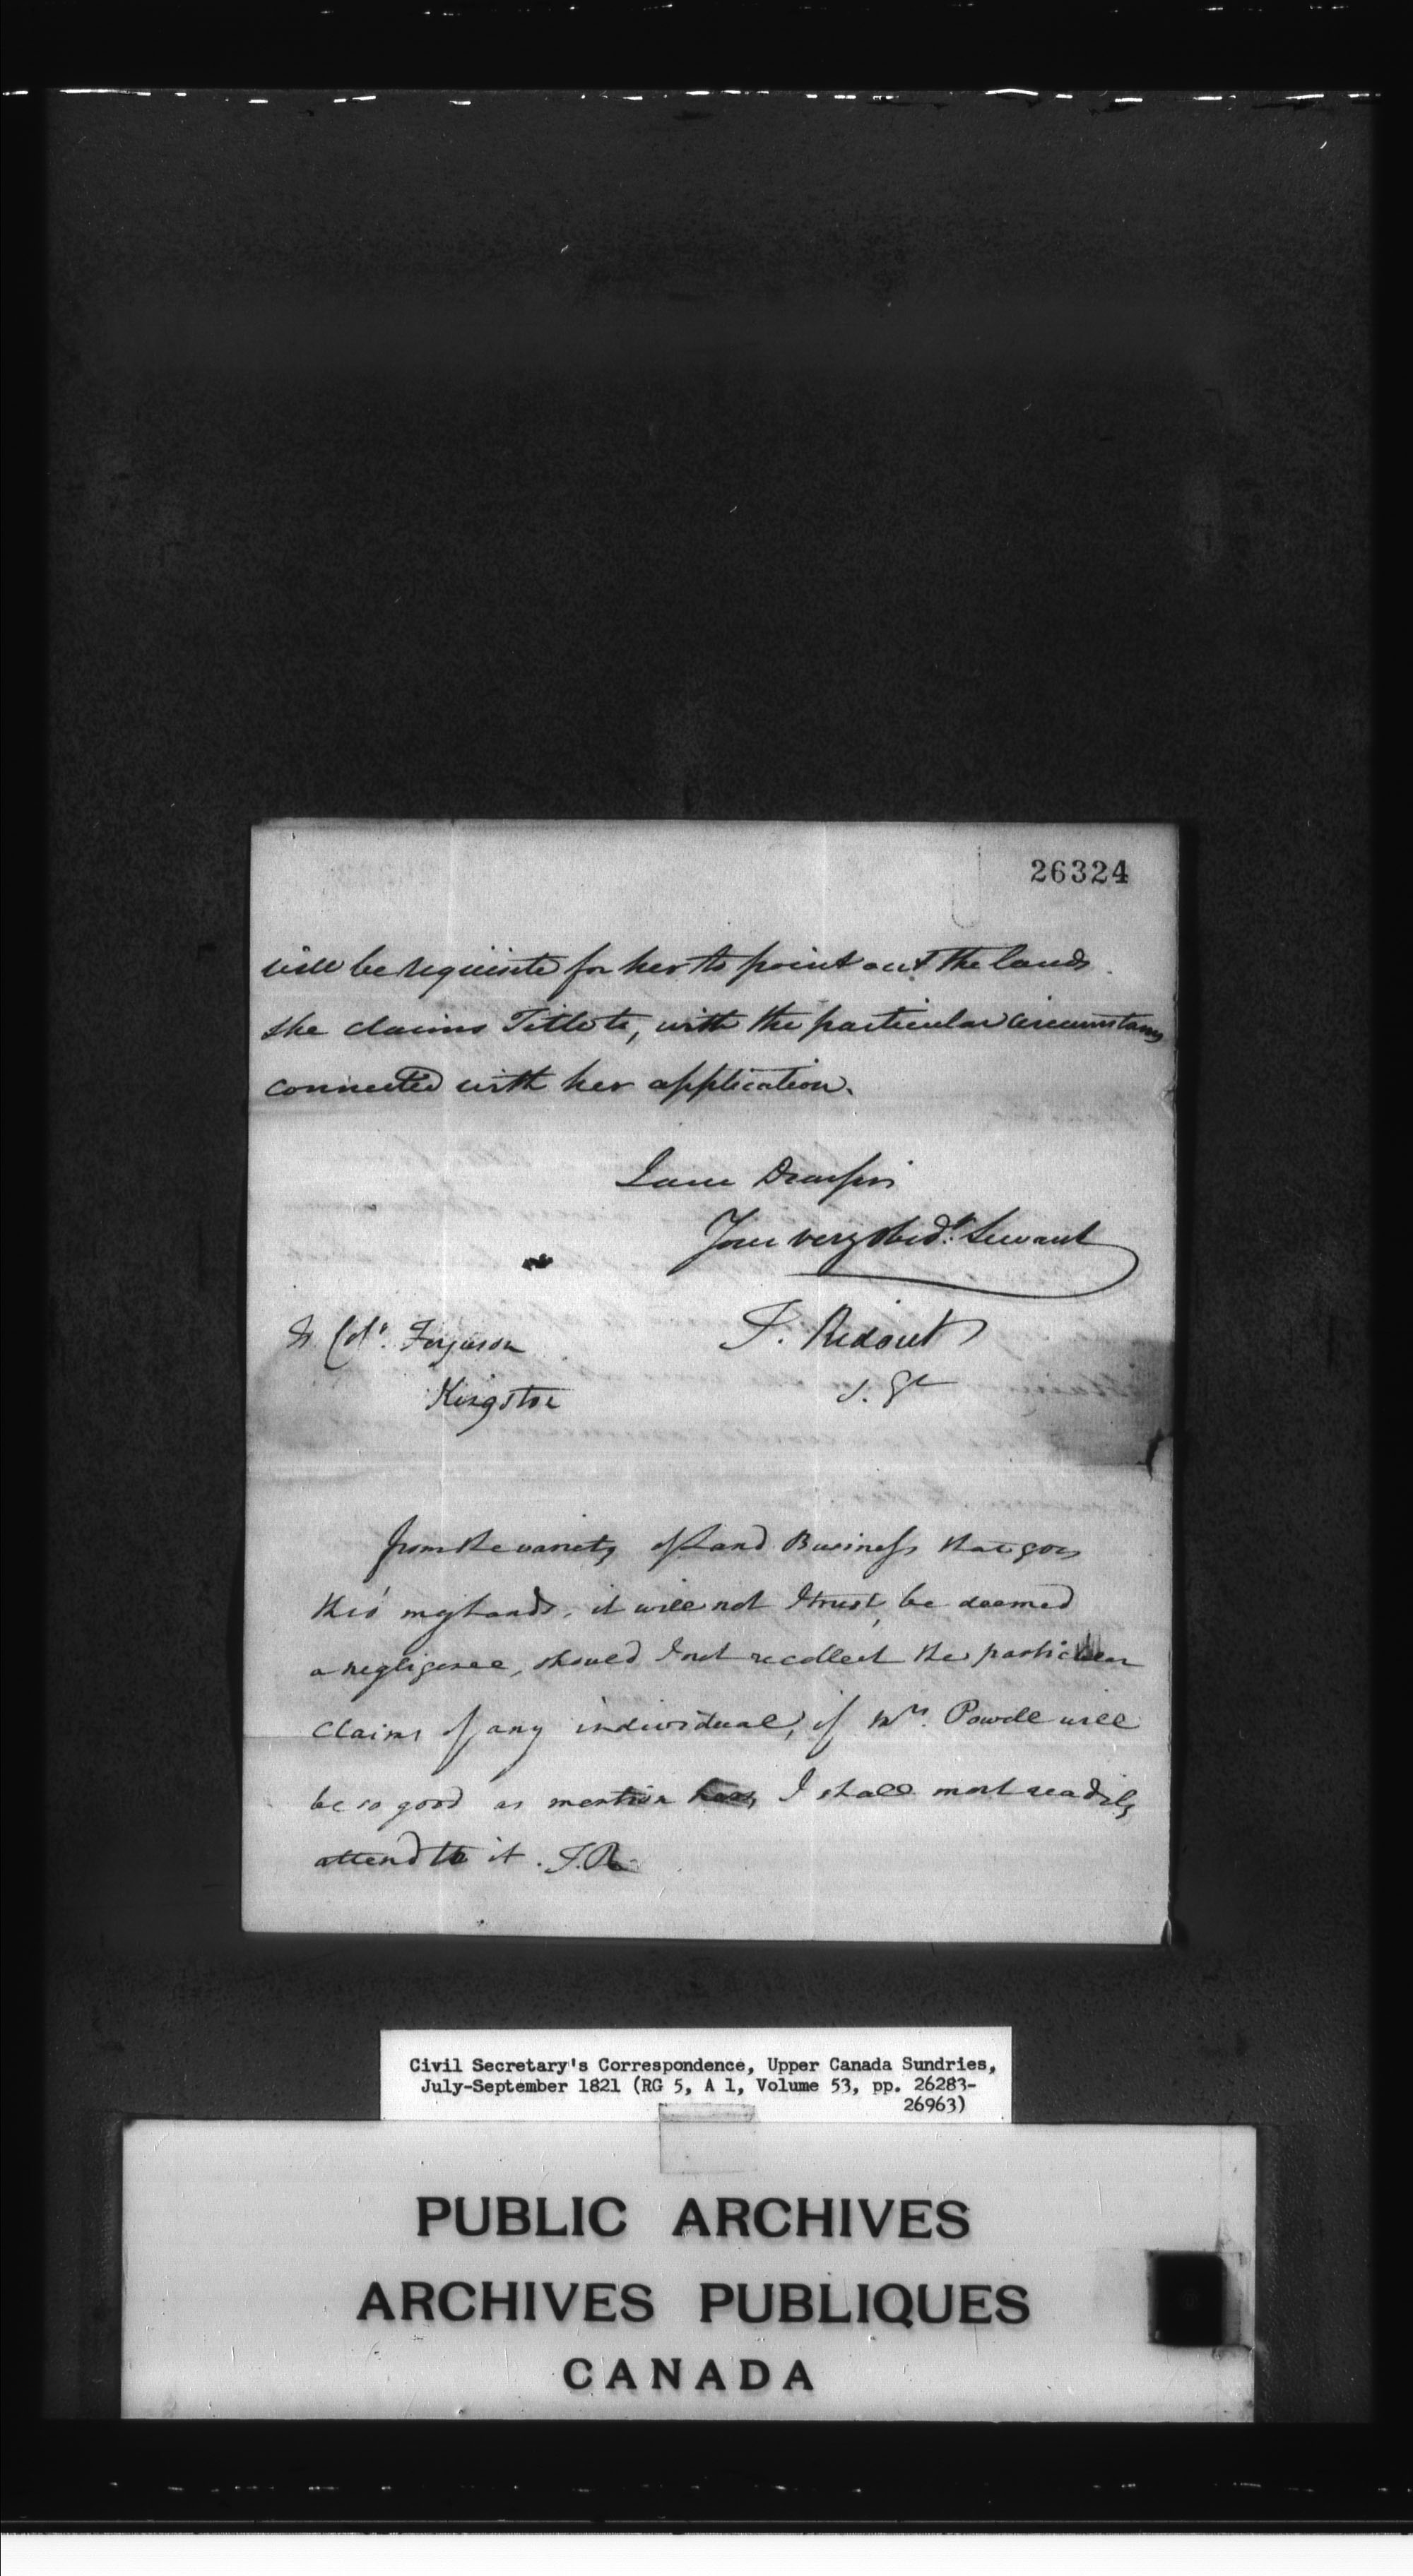 26324
will be requisite for her to point out the lands
she claims Title to, with the particular Circumstances
connected with her application.
I am Dear Sir
Your very Obedt. Servant
T. Ridout
S. Gl
To Coln. Ferguson
Kingston
From the variety of Land Business that goes
thro' my hands, it will not I trust, be deemed
a negligence, should I not recollect the particular
Claims of any individual, if Mrs. Powell will
be so good as mention I shall most readily
attend to it. T.R.
Civil Secretary's Correspondence, Upper Canada Sundries,
July-September 1821 (RG 5, A 1, Volume 53, pp. 26283-
26963)
PUBLIC ARCHIVES
ARCHIVES PUBLIQUES
CANADA